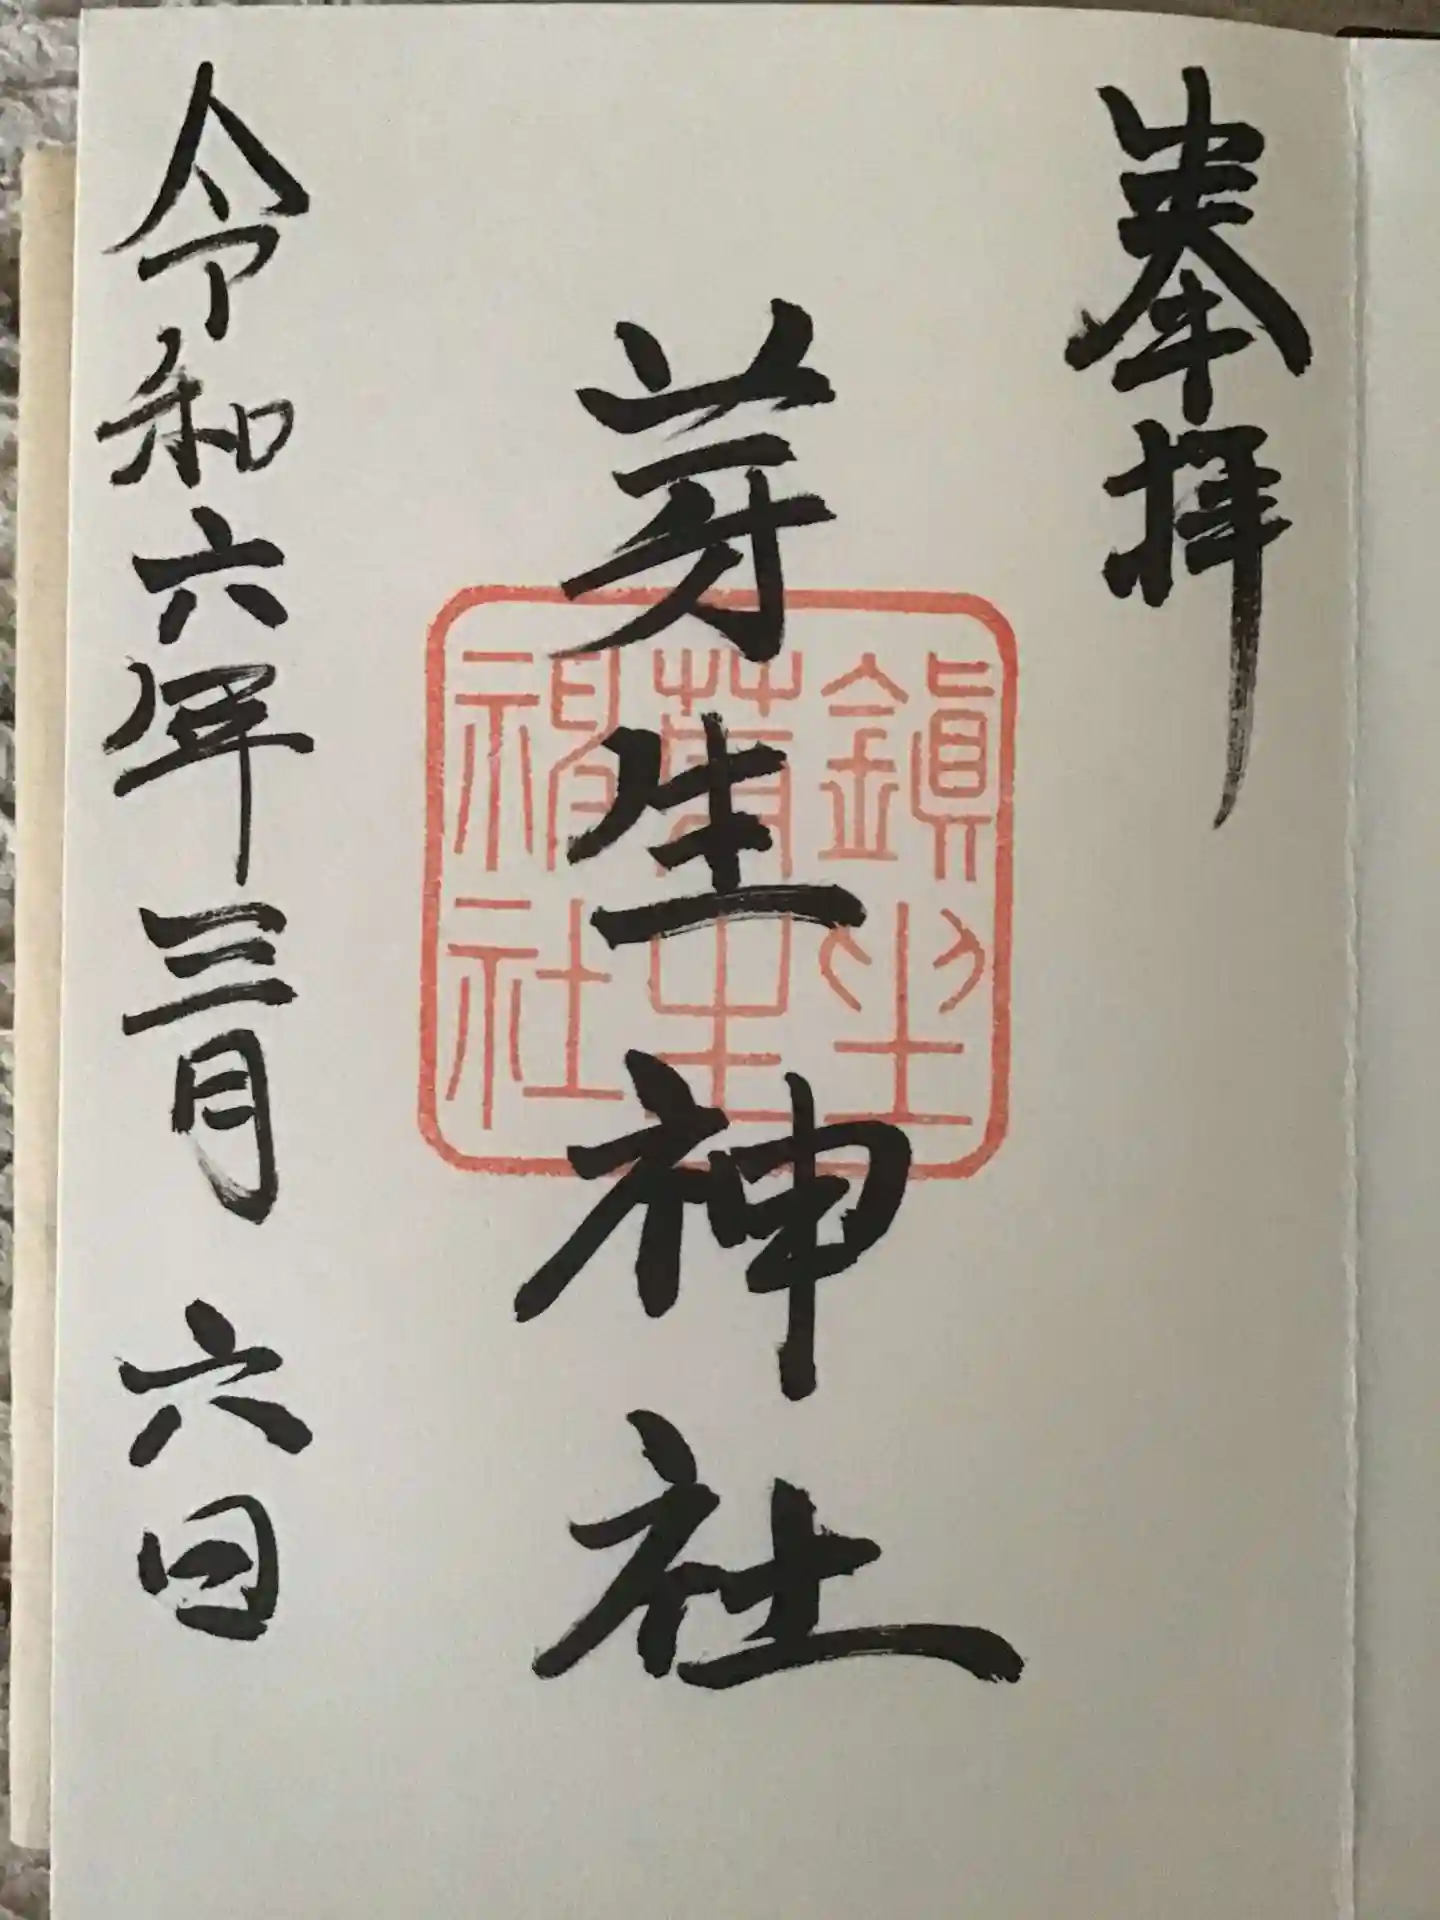 奉拝
芽生神社
鎮坐
社
令和六年三月六日